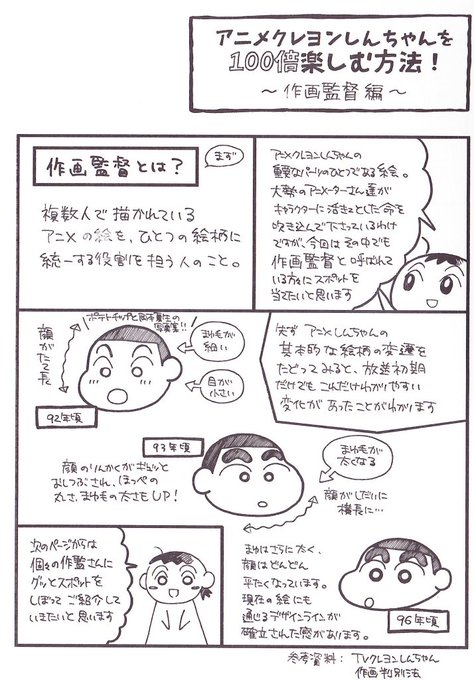 アニメクレヨンしんちゃんを
100倍楽しむ方法!
〜作画監督編〜
アニメクレヨンしんちゃんの
重要なパーツのひとつである絵。
大勢のアニメーターさん達が
キャラクターに活き活きとした命を
吹き込んで下さっているわけ
ですが、今回はその中でも
作画監督と呼ばれて
いる方々にスポットを
当てたいと思います
まず
作画監督とは?
複数人で描かれている
アニメの絵を、ひとつの絵柄に
統一する役割を担う人のこと。
まず アニメしんちゃんの
基本的な絵柄の変遷を
たどってみると、放送初期
だけでもこれだけわかりやすい
変化があったことがわかります
顔がたて長
まゆ毛が
細い
目が
小さい
92年頃
93年頃
顔のりんかくがギュッと
おしつぶされ、ほっぺの
丸さ、まゆ毛の太さもUP!
まゆ毛が
太くなる
顔がしだいに
横長に…
まゆはさらに太く、
顔はどんどん
平たくなっています。
現在の絵にも
通じるデザインラインが
確立された感があります。
96年頃
次のページからは
個々の作監さんに
グッとスポットを
しぼってご紹介して
いきたいと思います
参考資料:TVクレヨンしんちゃん
作画判別法